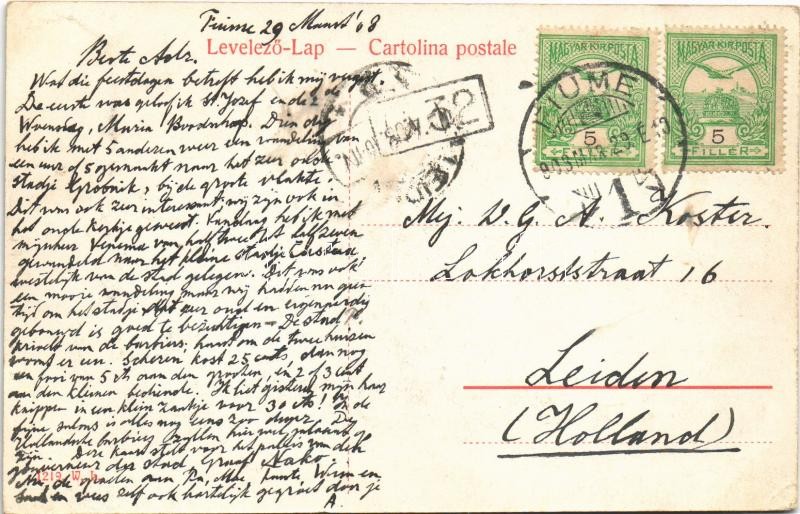 Fiume 29 Maart '08
Levelező-Lap — Cartolina postale
Beste Adr.
Wat die feestdagen betreft heb ik mij vergist.
De eerste was geloof ik St. Josef en de 2de
Woensdag, Maria Boodschap. Drie dg
heb ik met 5 anderen weer een wandeling van
een uur of 5 gemaakt naar het zeer oude
stadje Grobnik, bij de groote vlakte.
Dit was ook zeer interessant; wij zijn ook in
het oude kerkje geweest. Vandaag heb ik met
mijnheer Venema van half twee tot half zeven
gewandeld naar het kleine stadje
westelijk van de stad gelegen. Dit was ook
een mooie wandeling maar wij hadden nu geen
tijd om het stadje dat zeer oud en eigenaardig
gebouwd is goed te bezichtigen – De stad
krioelt van de barbiers; haast om de twee huizen
woont er een. Scheren kost 25 cents, dan nog
een fooi van 5 cts aan den grooten, en 2 of 3 cent
aan den kleinen bediende. Ik liet gisteren mijn haar
knippen in een klein zaakje voor 30 cts! In de
fijne salons is alles nog eens zoo duur. De
Hollandsche barbiers zullen hier wel jaloersch
zijn. Deze kaart stelt voor het paleis van den
gouverneur der stad, Graaf Nako.
Nu, de groeten aan Pa, Moe, tante Wim en
en wees zelf ook hartelijk gegroet door je
A.
1219 W. L.
MAGYAR KIR. POSTA
5
FILLÉR
MAGYAR KIR. POSTA
5
FILLÉR
FIUME
908 MÁR 29 E
1
Mej. D. G. A. Koster.
Lokhorststraat 16
Leiden
(Holland)